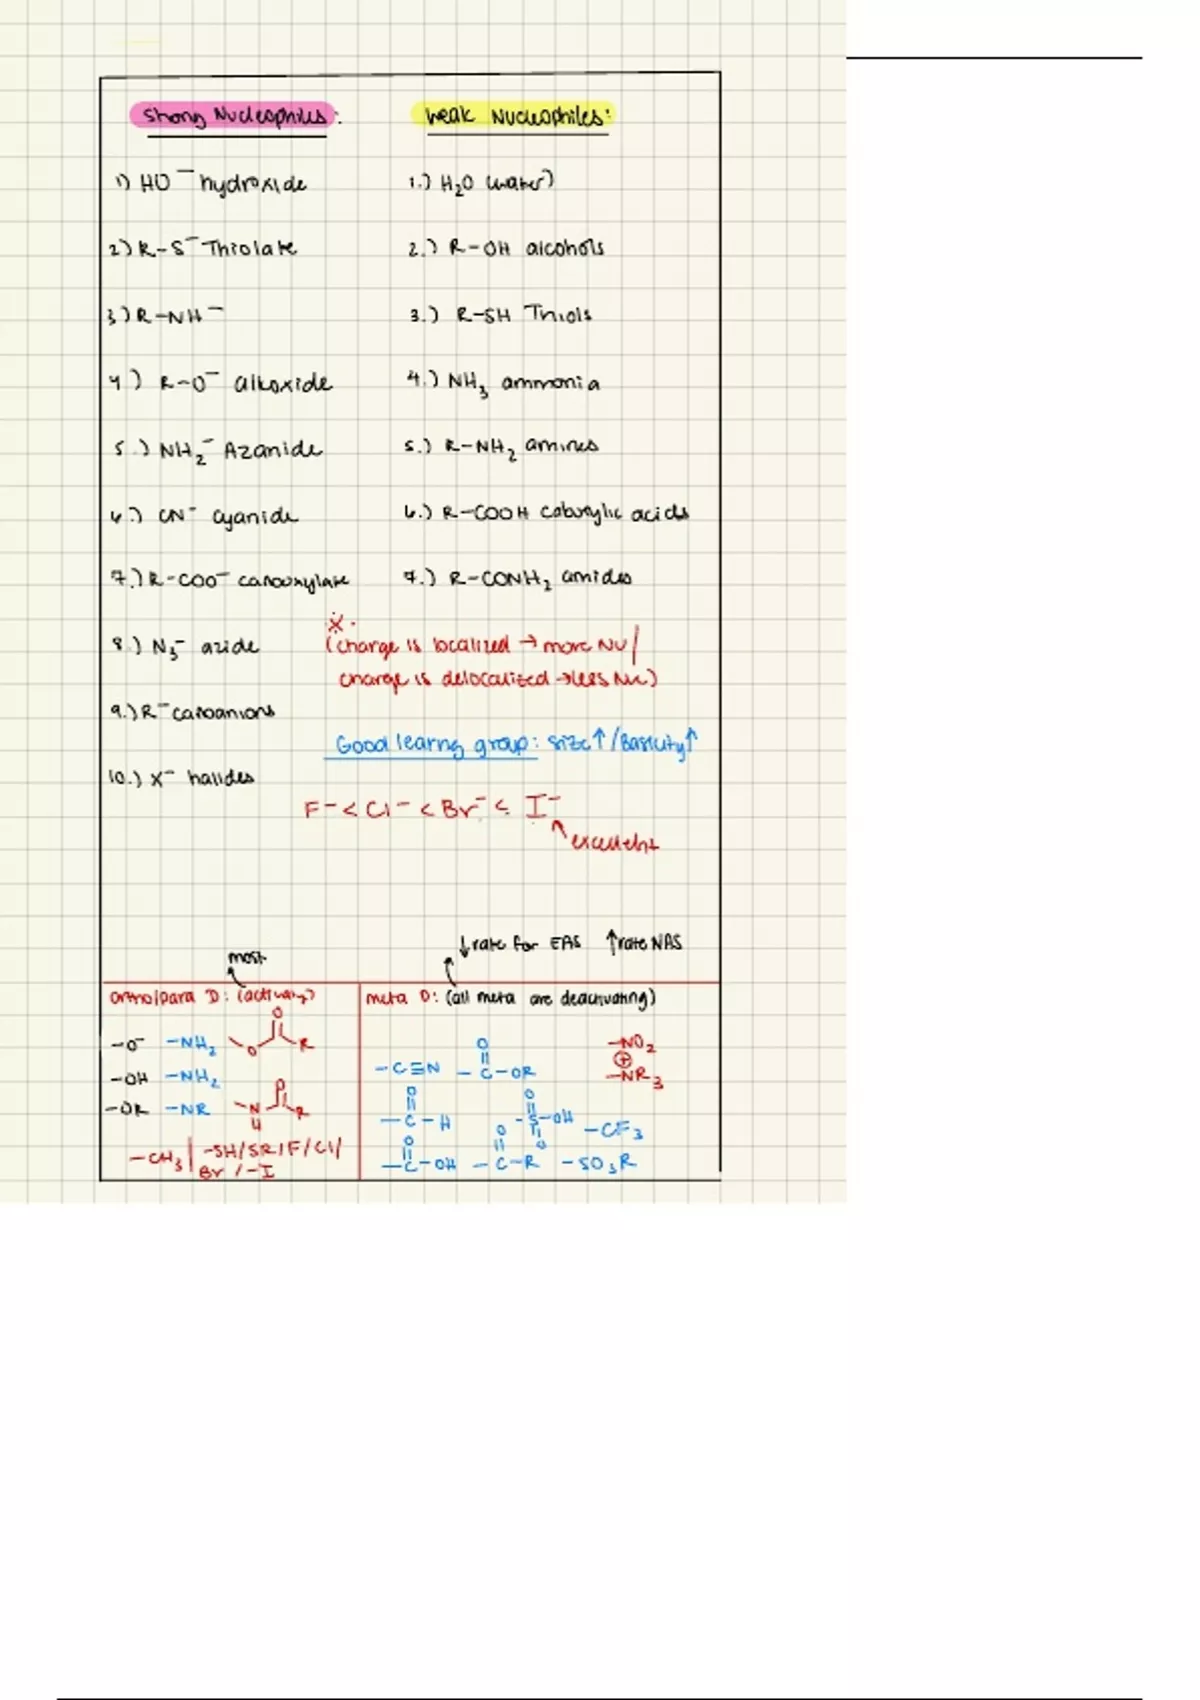 Strong Nucleophiles:
Weak Nucleophiles:
1) HO⁻ hydroxide
1.) H₂O (water)
2) R-S⁻ Thiolate
2.) R-OH alcohols
3) R-NH⁻
3.) R-SH Thiols
4) R-O⁻ alkoxide
4.) NH₃ ammonia
5.) NH₂⁻ Azanide
5.) R-NH₂ amines
6.) CN⁻ cyanide
6.) R-COOH caboxylic acids
7.) R-COO⁻ carboxylate
7.) R-CONH₂ amides
8.) N₃⁻ azide
(charge is localized → more Nu/
charge is delocalized → less Nu)
9.) R⁻ carbanions
Good leaving group: size↑/Basicity↑
10.) X⁻ halides
F⁻ < Cl⁻ < Br⁻ < I⁻
excellent
↓rate for EAS ↑rate NAS
most
ortho/para D: (activating)
meta D: (all meta are deactivating)
-O⁻ -NH₂ -O-C(=O)-R
-C≡N -C(=O)-OR -NO₂
-OH -NH₂
-⊕NR₃
-OR -NR -NH-C(=O)-R
-C(=O)-H -S(=O)(=O)-OH -CF₃
-CH₃ | -SH/SR/F/Cl/
Br/-I
-C(=O)-OH -C(=O)-R -SO₃R